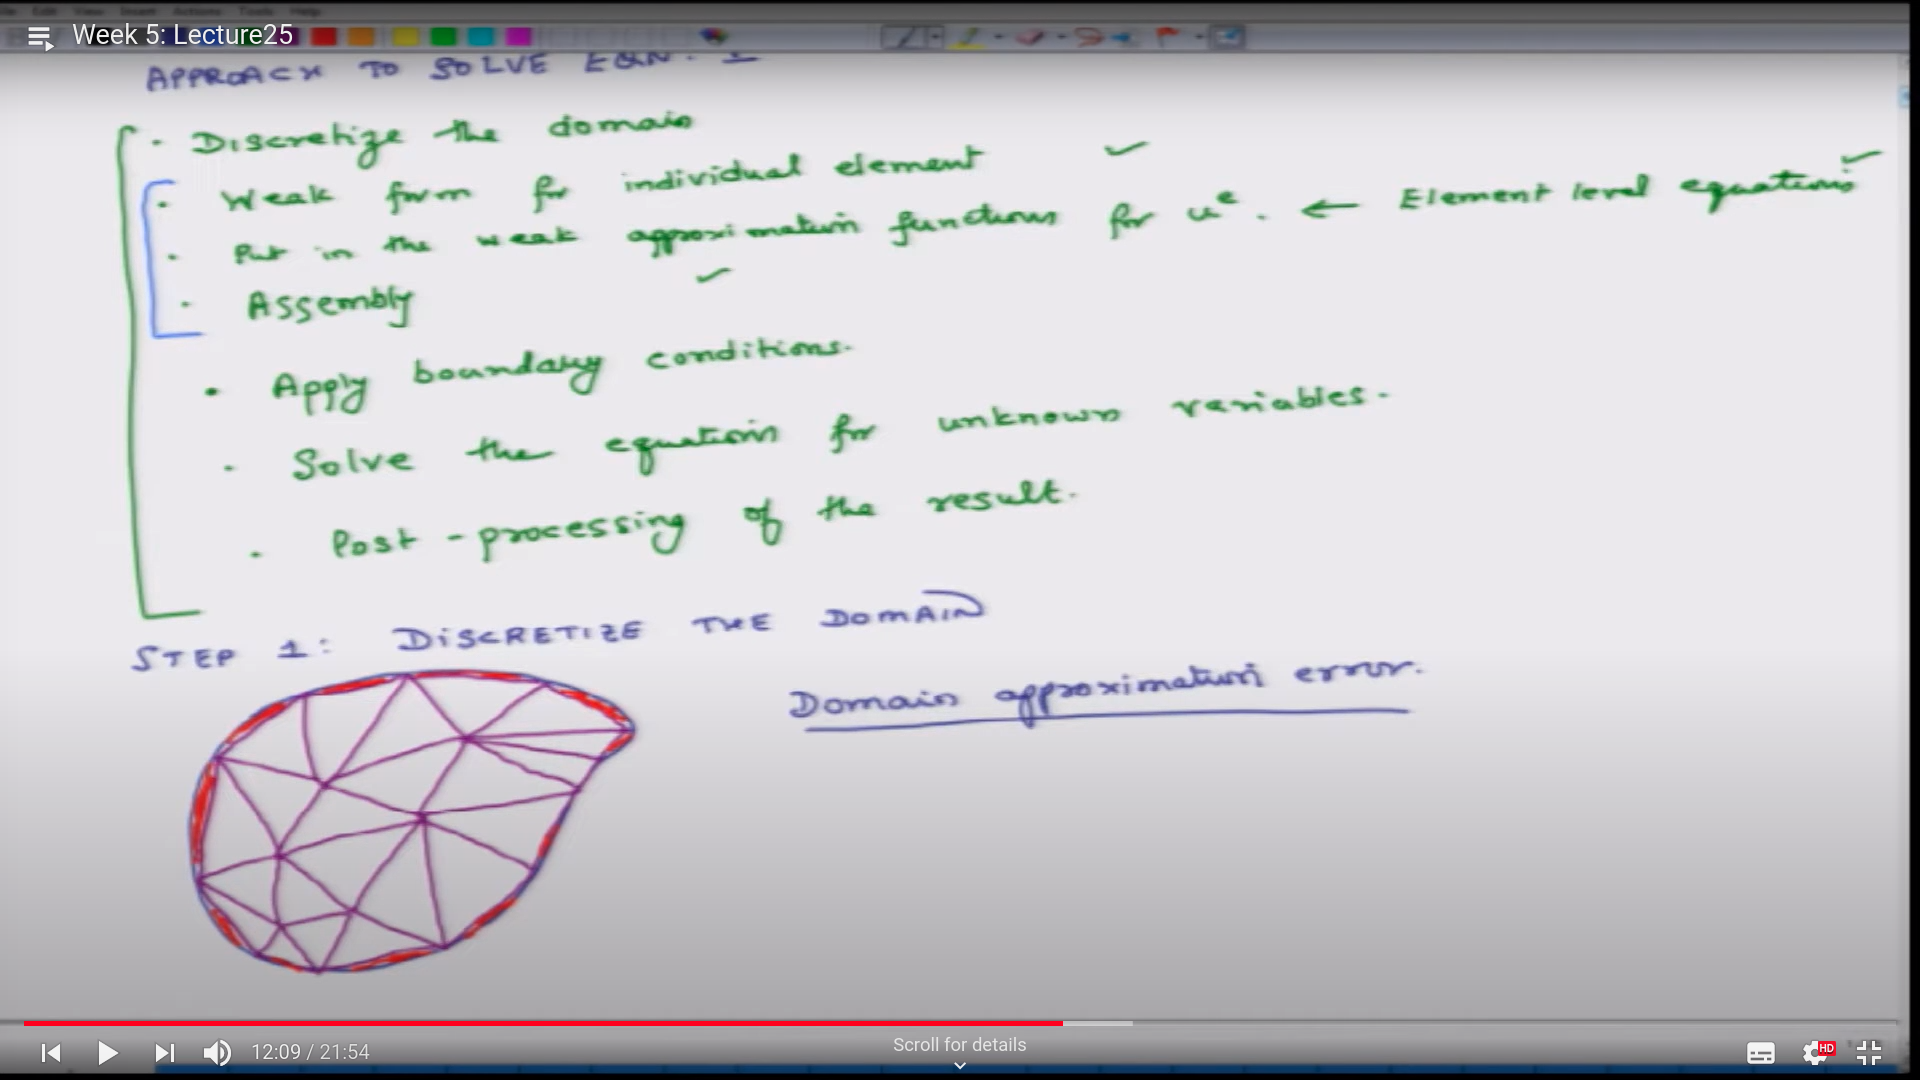 File Edit View Insert Actions Tools Help
Week 5: Lecture25
APPROACH TO SOLVE EQN. 1
• Discretize the domain
• Weak form for individual element ✓
• Put in the weak approximation functions for uᵉ. ← Element level equations ✓
• Assembly ✓
• Apply boundary conditions.
• Solve the equations for unknown variables.
• Post-processing of the result.
STEP 1: DISCRETIZE THE DOMAIN
Domain approximation error.
Scroll for details
12:09 / 21:54
HD